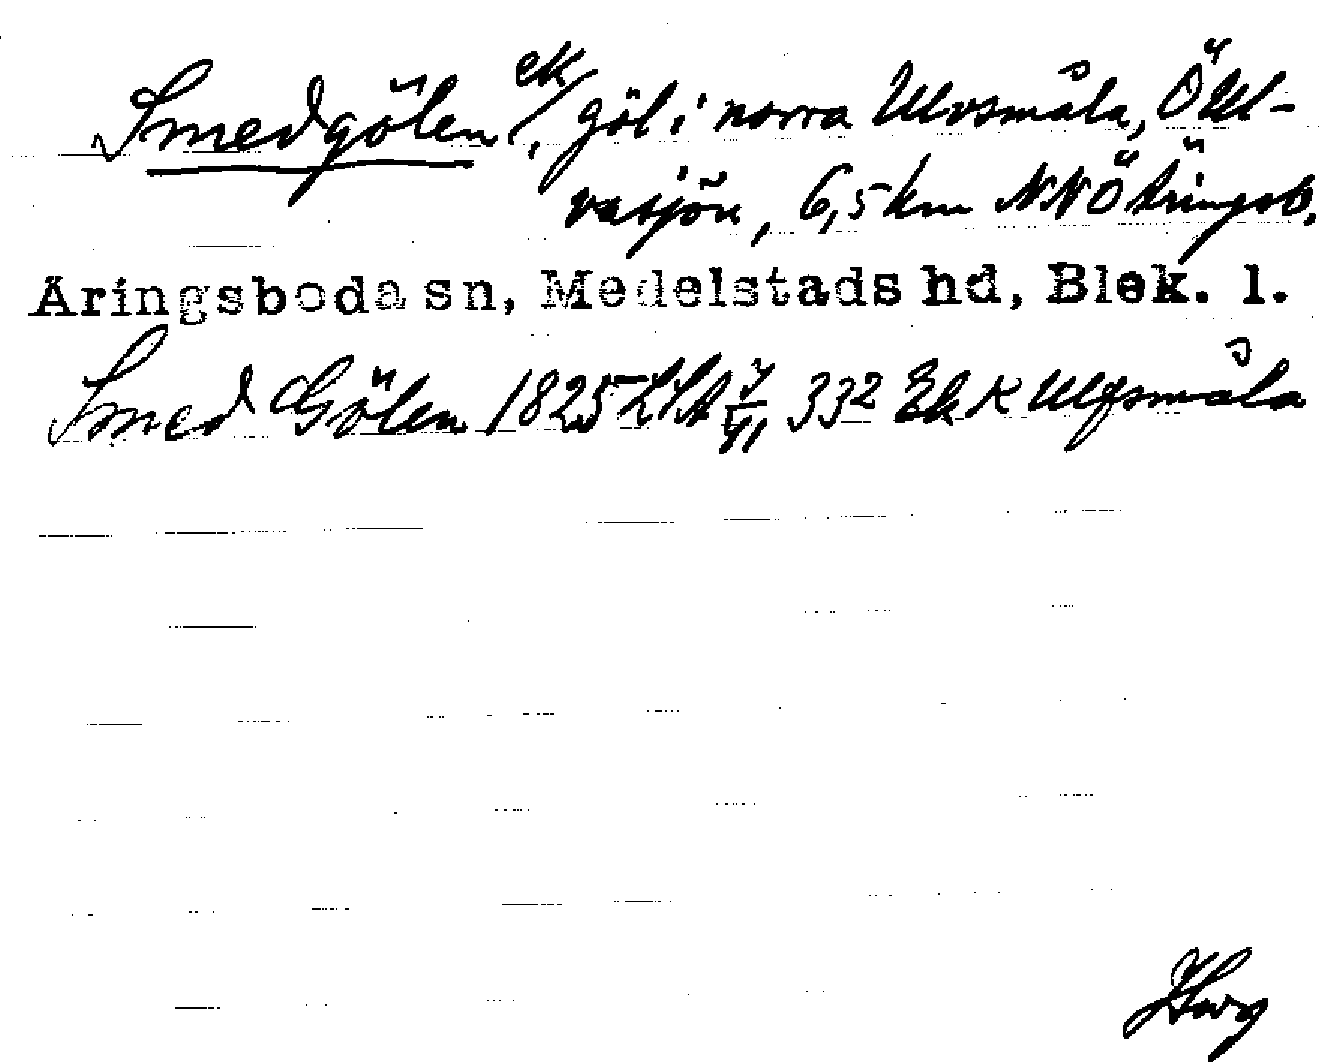 Smedgölen ek, göl i norra Ulvsmåla, Ö Ul-
vasjön, 6,5 km NNÖ Äringsb.
Äringsboda sn, Medelstads hd, Blek. l.
Smed Gölen 1825 LSA 332 Ek K Ulfsmåla